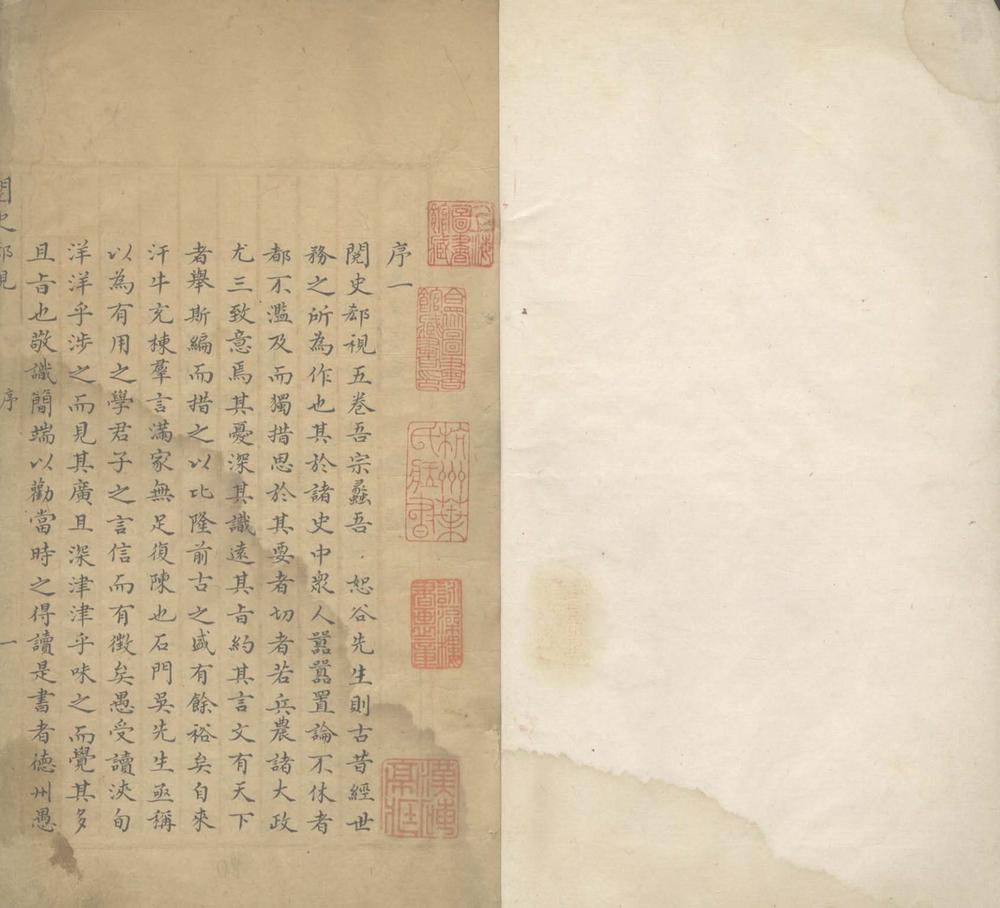 序一
閱史郄視五卷吾宗蠡吾恕谷先生則古昔經世
務之所為作也其於諸史中衆人囂囂置論不休者
都不濫及而獨措思於其要者切者若兵農諸大政
尤三致意焉其憂深其識遠其旨約其言文有天下
者舉斯編而措之以比隆前古之盛有餘裕矣自來
汗牛充棟羣言滿家無足復陳也石門吳先生亟稱
以為有用之學君子之言信而有徵矣愚受讀浹旬
洋洋乎涉之而見其廣且深津津乎味之而覺其多
且旨也敬識簡端以勸當時之得讀是書者德州愚
閱史郄視 序 一
上海圖書館藏
合眾圖書館藏書印
杭州葉氏藏書
書畫章